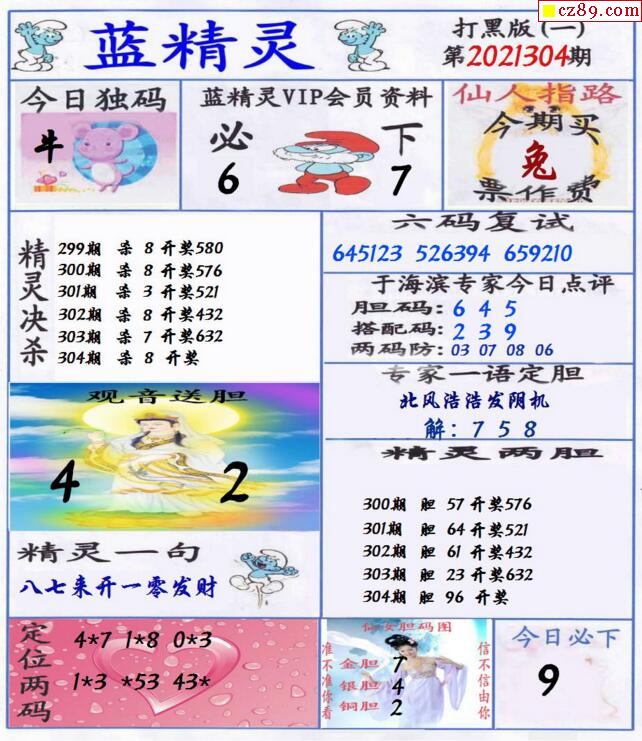 cz89.com
蓝精灵
打黑版(一)
第2021304期
今日独码
牛
蓝精灵VIP会员资料
必 下
6 7
仙人指路
今期买
兔
票作费
精灵决杀
299期 杀 8 开奖580
300期 杀 8 开奖576
301期 杀 3 开奖521
302期 杀 8 开奖432
303期 杀 7 开奖632
304期 杀 8 开奖
六码复试
645123 526394 659210
于海滨专家今日点评
胆码: 6 4 5
搭配码: 2 3 9
两码防: 03 07 08 06
专家一语定胆
北风浩浩发阴机
解: 7 5 8
观音送胆
4 2
精灵两胆
300期 胆 57 开奖576
301期 胆 64 开奖521
302期 胆 61 开奖432
303期 胆 23 开奖632
304期 胆 96 开奖
精灵一句
八七来开一零发财
定位两码
4*7 1*8 0*3
1*3 *53 43*
仙女胆码图
准不准你看
金胆 7
银胆 4
铜胆 2
信不信由你
今日必下
9